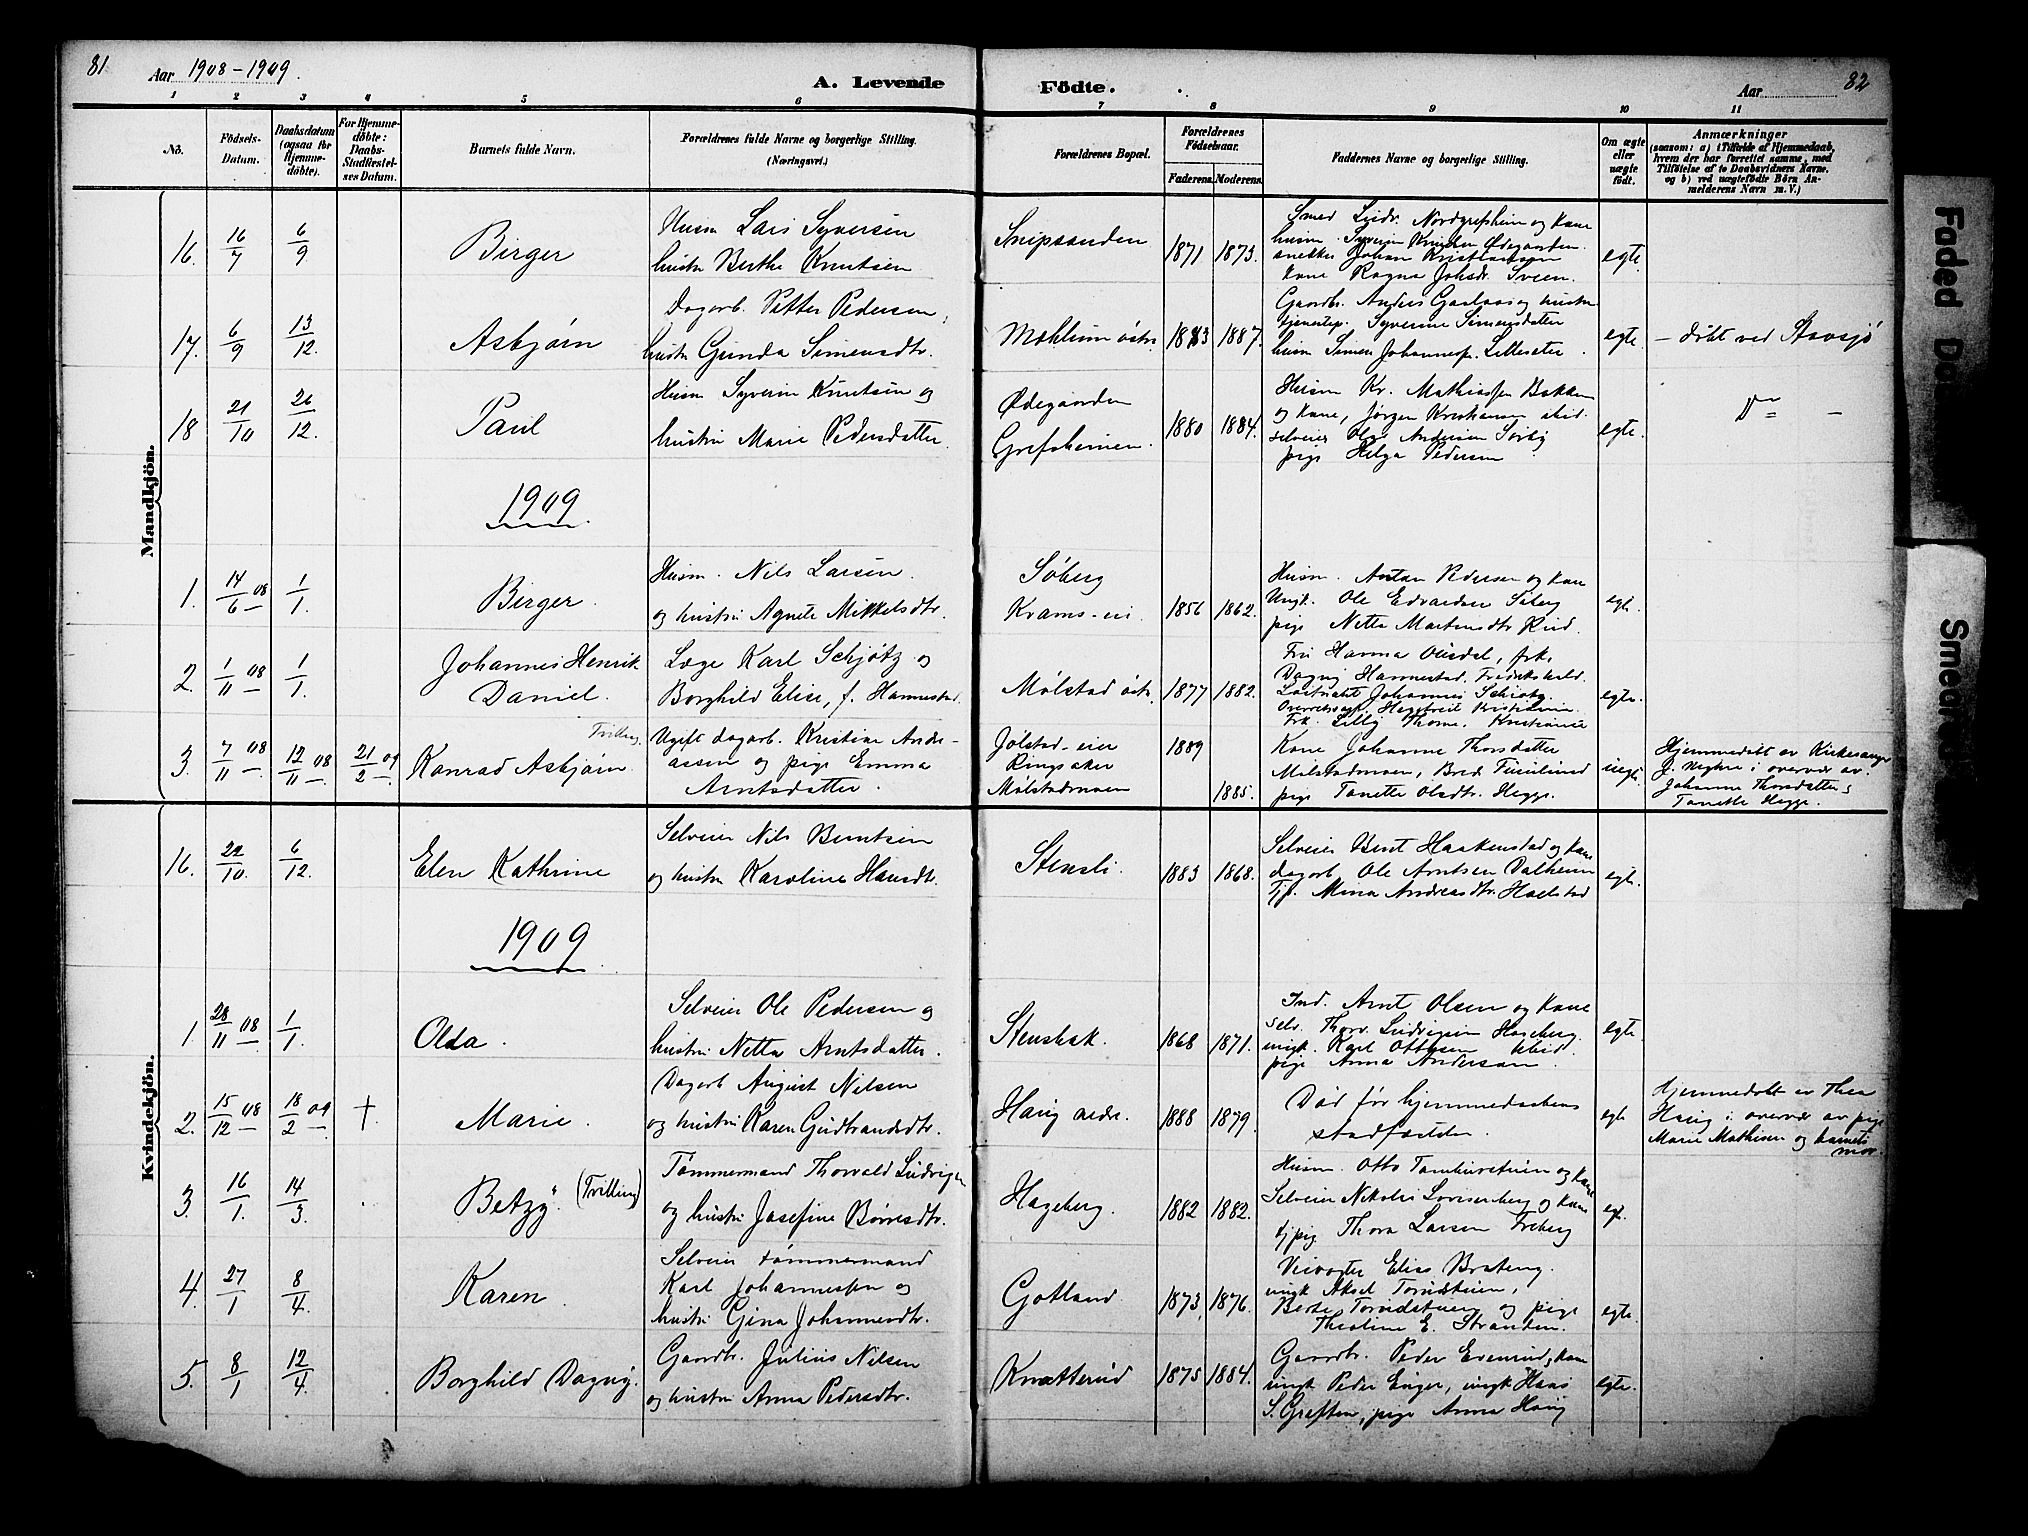 81 Aar 1908-1909. A. Levende Födte. Aar 82
1 2 3 4 5 6 7 8 9 10 11
No. Födsels-Datum. Daabsdatum (ogsaa for Hjemmedöbte). For Hjemmedöbte: Daabs-Stadfæstelses Datum. Barnets fulde Navn. Forældrenes fulde Navne og borgerlige Stilling. (Næringsvei.) Forældrenes Bopæl. Forældrenes Födselsaar. Faderens. Moderens. Faddernes Navne og borgerlige Stilling. Om ægte eller uægte födt. Anmærkninger (saasom: a) i Tilfælde af Hjemmedaab, hvem der har forrettet samme, med Tilföielse af to Daabsvidners Navne. og b) ved uægtefödte Börn Anmelderens Navn m. V.)
Mandkjön.
16. 16/7 6/9 Birger
Husm Lars Syversen
hustru Berthe Knutsen
Snipsanden 1871 1873.
Smed Ludv. Nordgrefsheim og kone
husm. Syverin Knutsen Ødegaarden
Johan Kristiansen
kone Ragna Johsdr. Sveen.
egte.
17. 6/9 13/12. Asbjørn
Dagarb. Petter Pedersen,
hustru Gunda Simensdtr.
Mæhlum østre 1883 1887.
Gaardbr. Anders Gaalaas og hustru
tjenestep. Syverine Simensdatter
husm Simen Johannesen Lillesæter.
egte. — døbt ved Stavsjø
18 21/10 26/12. Paul
Husm Syverin Knutsen og
hustru Marie Pedersdatter
Ødegaarden
Grefsheimeie. 1880 1884.
Husm Kr. Mathiassen Bakken
og kone, Jørgen Kristiansen ibid.
selveier Ole Andersen Sørby
pige Helga Pedersen
egte. Do —
1909
1. 14/6 08 1/1. Birger.
Husm. Nils Larsen.
og hustru Agnete Mikkelsdtr.
Søberg
Krams-eie 1856 1862.
Husm. Anton Pedersen og kone
Ungk. Ole Edvardsen Søberg
pige Netta Martinsdtr Rud.
egte.
2. 1/11 08 1/1. Johannes Henrik
Daniel.
Læge Karl Schjøtz og
Borghild Elise, f. Hannestad.
Mølstad østre 1877 1882.
Fru Hanna Olsdal, frk.
Dagny Hannestad. Fredrikshald.
Løitnant Johannes Schiøtz.
Overretssagf. Kristiania
Frk. Lilly Thome. Kristiania
egte.
3. 7/11 08 12/11 08 21/2 09 Konrad Asbjørn. Tvilling.
Ugift dagarb. Kristian Andre-
assen og pige Emma
Arntsdatter.
Jølstad-eier
Ringsaker
Mølstadmoen 1889 1885.
Kone Johanne Thorsdatter
Mølstadmoen, Bred
pige Tanette Olsdtr. Hegge.
uegte
Hjemmedøbt av Kirkesanger
J. i overvær av
Johanne Thorsdatter &
Tanette Hegge.
Kvindekjön.
16. 22/10. 6/12. Elen Kathrine
Selveier Nils Berntsen
og hustru Karoline Hansdtr.
Stensli. 1883 1868.
Selveier Bent Haakenstad og kone
dagarb Ole Arntsen Dalheim
Tjp. Mina Andreasdtr. Hoelstad
egte.
1909
1 28/11 08 1/1. Olda.
Selveier Ole Pedersen og
hustru Netta Arntsdatter.
Stensbak. 1868 1871.
Ind. Arnt Olsen og kone
selv. Thorv. Ludvigsen Hageberg
ungk. Karl Ottesen ibid.
pige Anna Andersen.
egte
2. 15/12 08 18/2 09 † Marie.
Dagarb August Nilsen
og hustru Karen Gudbrandsdtr.
Haug nedre. 1888 1879.
Død før hjemmedaabens
stadfæstelse.
egte
Hjemmedøbt av Thea
Haug i overvær av pige
Marie Mathisen og barnets
mor.
3. 16/1. 14/3. Betzy. (Tvilling)
Tømmermand Thorvald Ludvigsen
og hustru Josefine Børresdtr.
Hageberg. 1882 1882.
Husm. Otto og kone
Selveier Nikolai Lovisenberg og kone
tj.pig Thora Larsen Freberg
egt.
4. 27/1 8/4. Karen.
Selveier tømmermand
Karl Johannessen og
hustru Gina Johannesdtr.
Gotland. 1873, 1876.
Veivogter Elias Brateng.
ungk Aksel Torudstuen,
Berte Torudstuen og pige
Theoline E. Stranden.
egte.
5. 8/1 12/4. Borghild Dagny.
Gaardbr. Julius Nilsen
og hustru Anna Pedersdtr.
Knatterud 1875 1884.
Gaardbr. Peder Evenrud & kone
ungk Peder Enger, ungk Hans
S. Greften, pige Anna Haug
egte.
Faded Do
Smed